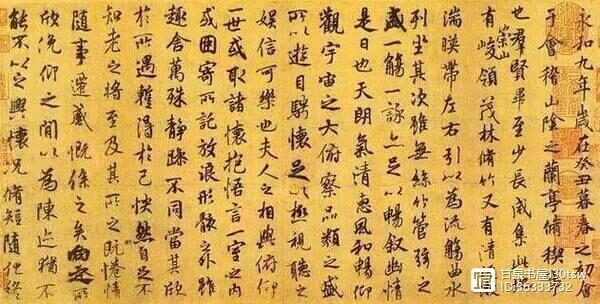 永和九年歲在癸丑暮春之初會
于會稽山陰之蘭亭脩稧
也羣賢畢至少長咸集此
有崇山峻領茂林脩竹又有清
湍暎帶左右引以為流觴曲水
列坐其次雖無絲竹管弦之
盛一觴一詠亦足以暢敘幽情
是日也天朗氣清惠風和暢仰
觀宇宙之大俯察品類之盛
所以遊目騁懷足以極視聽之
娛信可樂也夫人之相與俯仰
一世或取諸懷抱悟言一室之內
或因寄所託放浪形骸之外雖
趣舍萬殊靜躁不同當其欣
於所遇蹔得於己怏然自足不
知老之將至及其所之既惓情
隨事遷感慨係之矣向之所
欣俛仰之間以為陳迹猶不
能不以之興懷況脩短隨化終
甘泉书屋l30tsw
ID:86333732